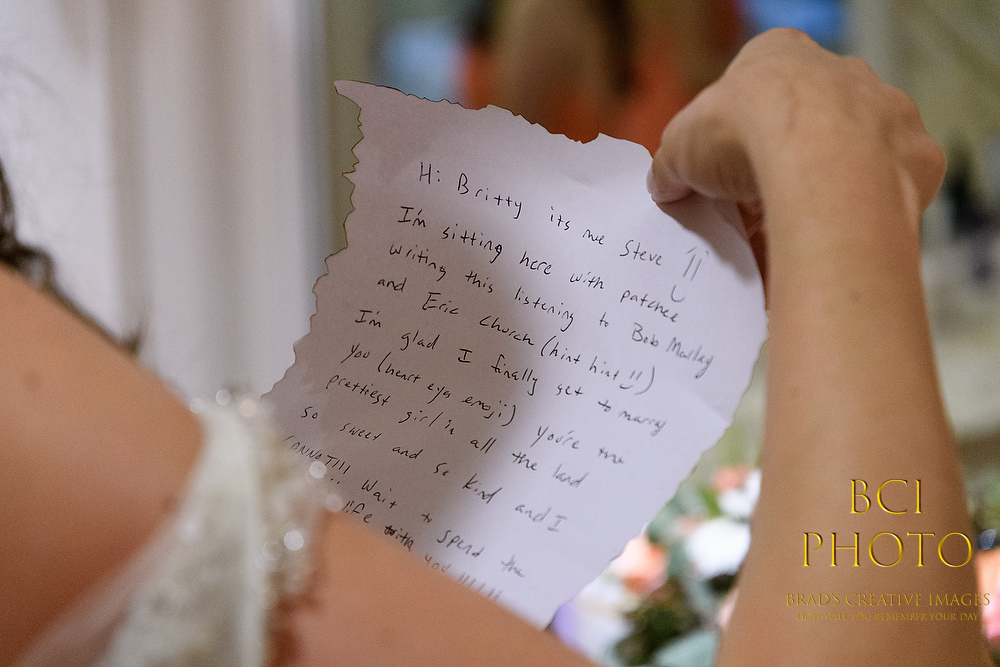 Hi Britty its me Steve
I'm sitting here with patchee
writing this listening to Bob Marley
and Eric Church (hint hint!!)
I'm glad I finally get to marry
you (heart eye emoji) You're the
prettiest girl in all the land
so sweet and so kind and I
CANNOT!!! Wait to spend the
life with you!!!!!
BCI
PHOTO
BRAD'S CREATIVE IMAGES
YOUR DAY